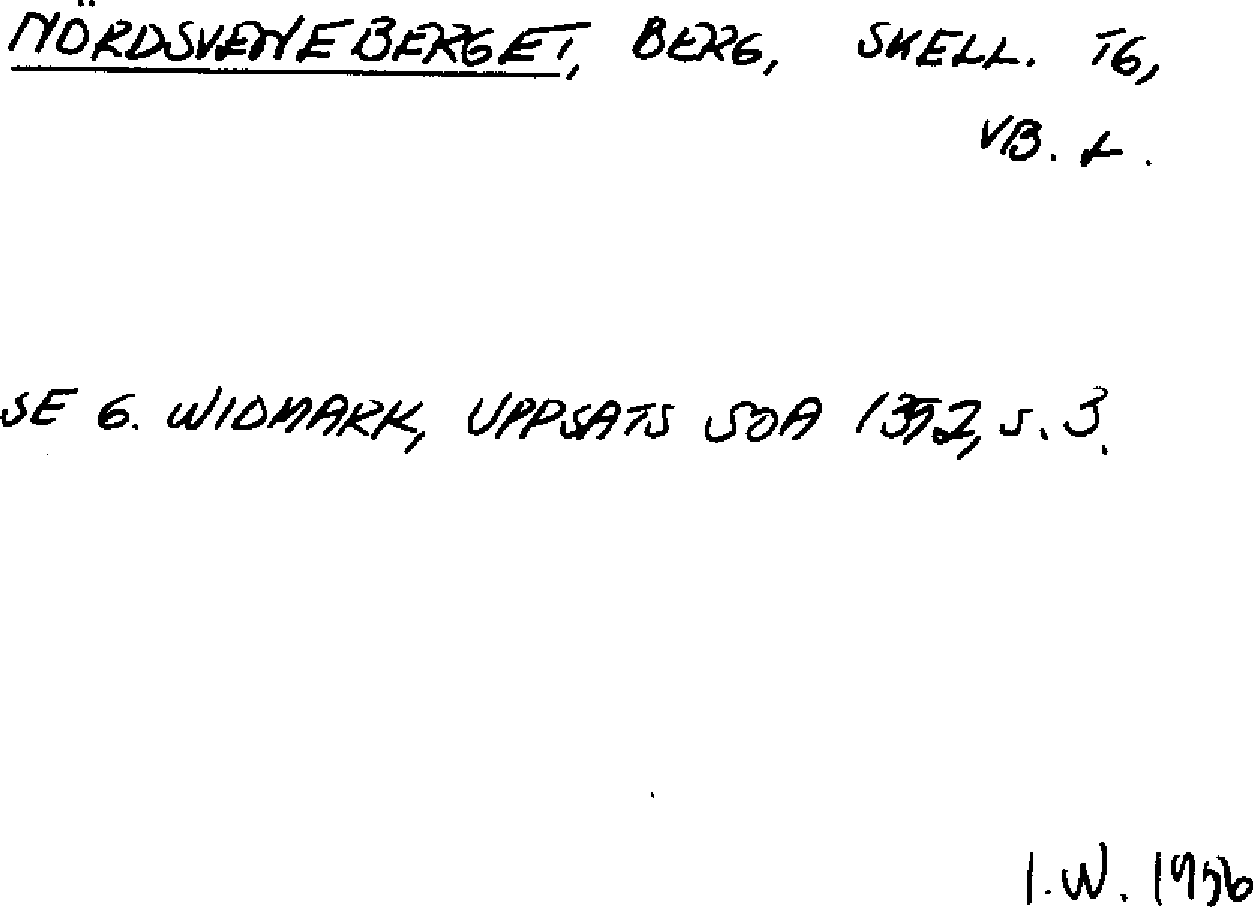 NÖRDSVENEBERGET, BERG, SKELL. TG,
VB. L.
SE G. WIDMARK, UPPSATS SOA 1392, S. 3.
I.W. 1956